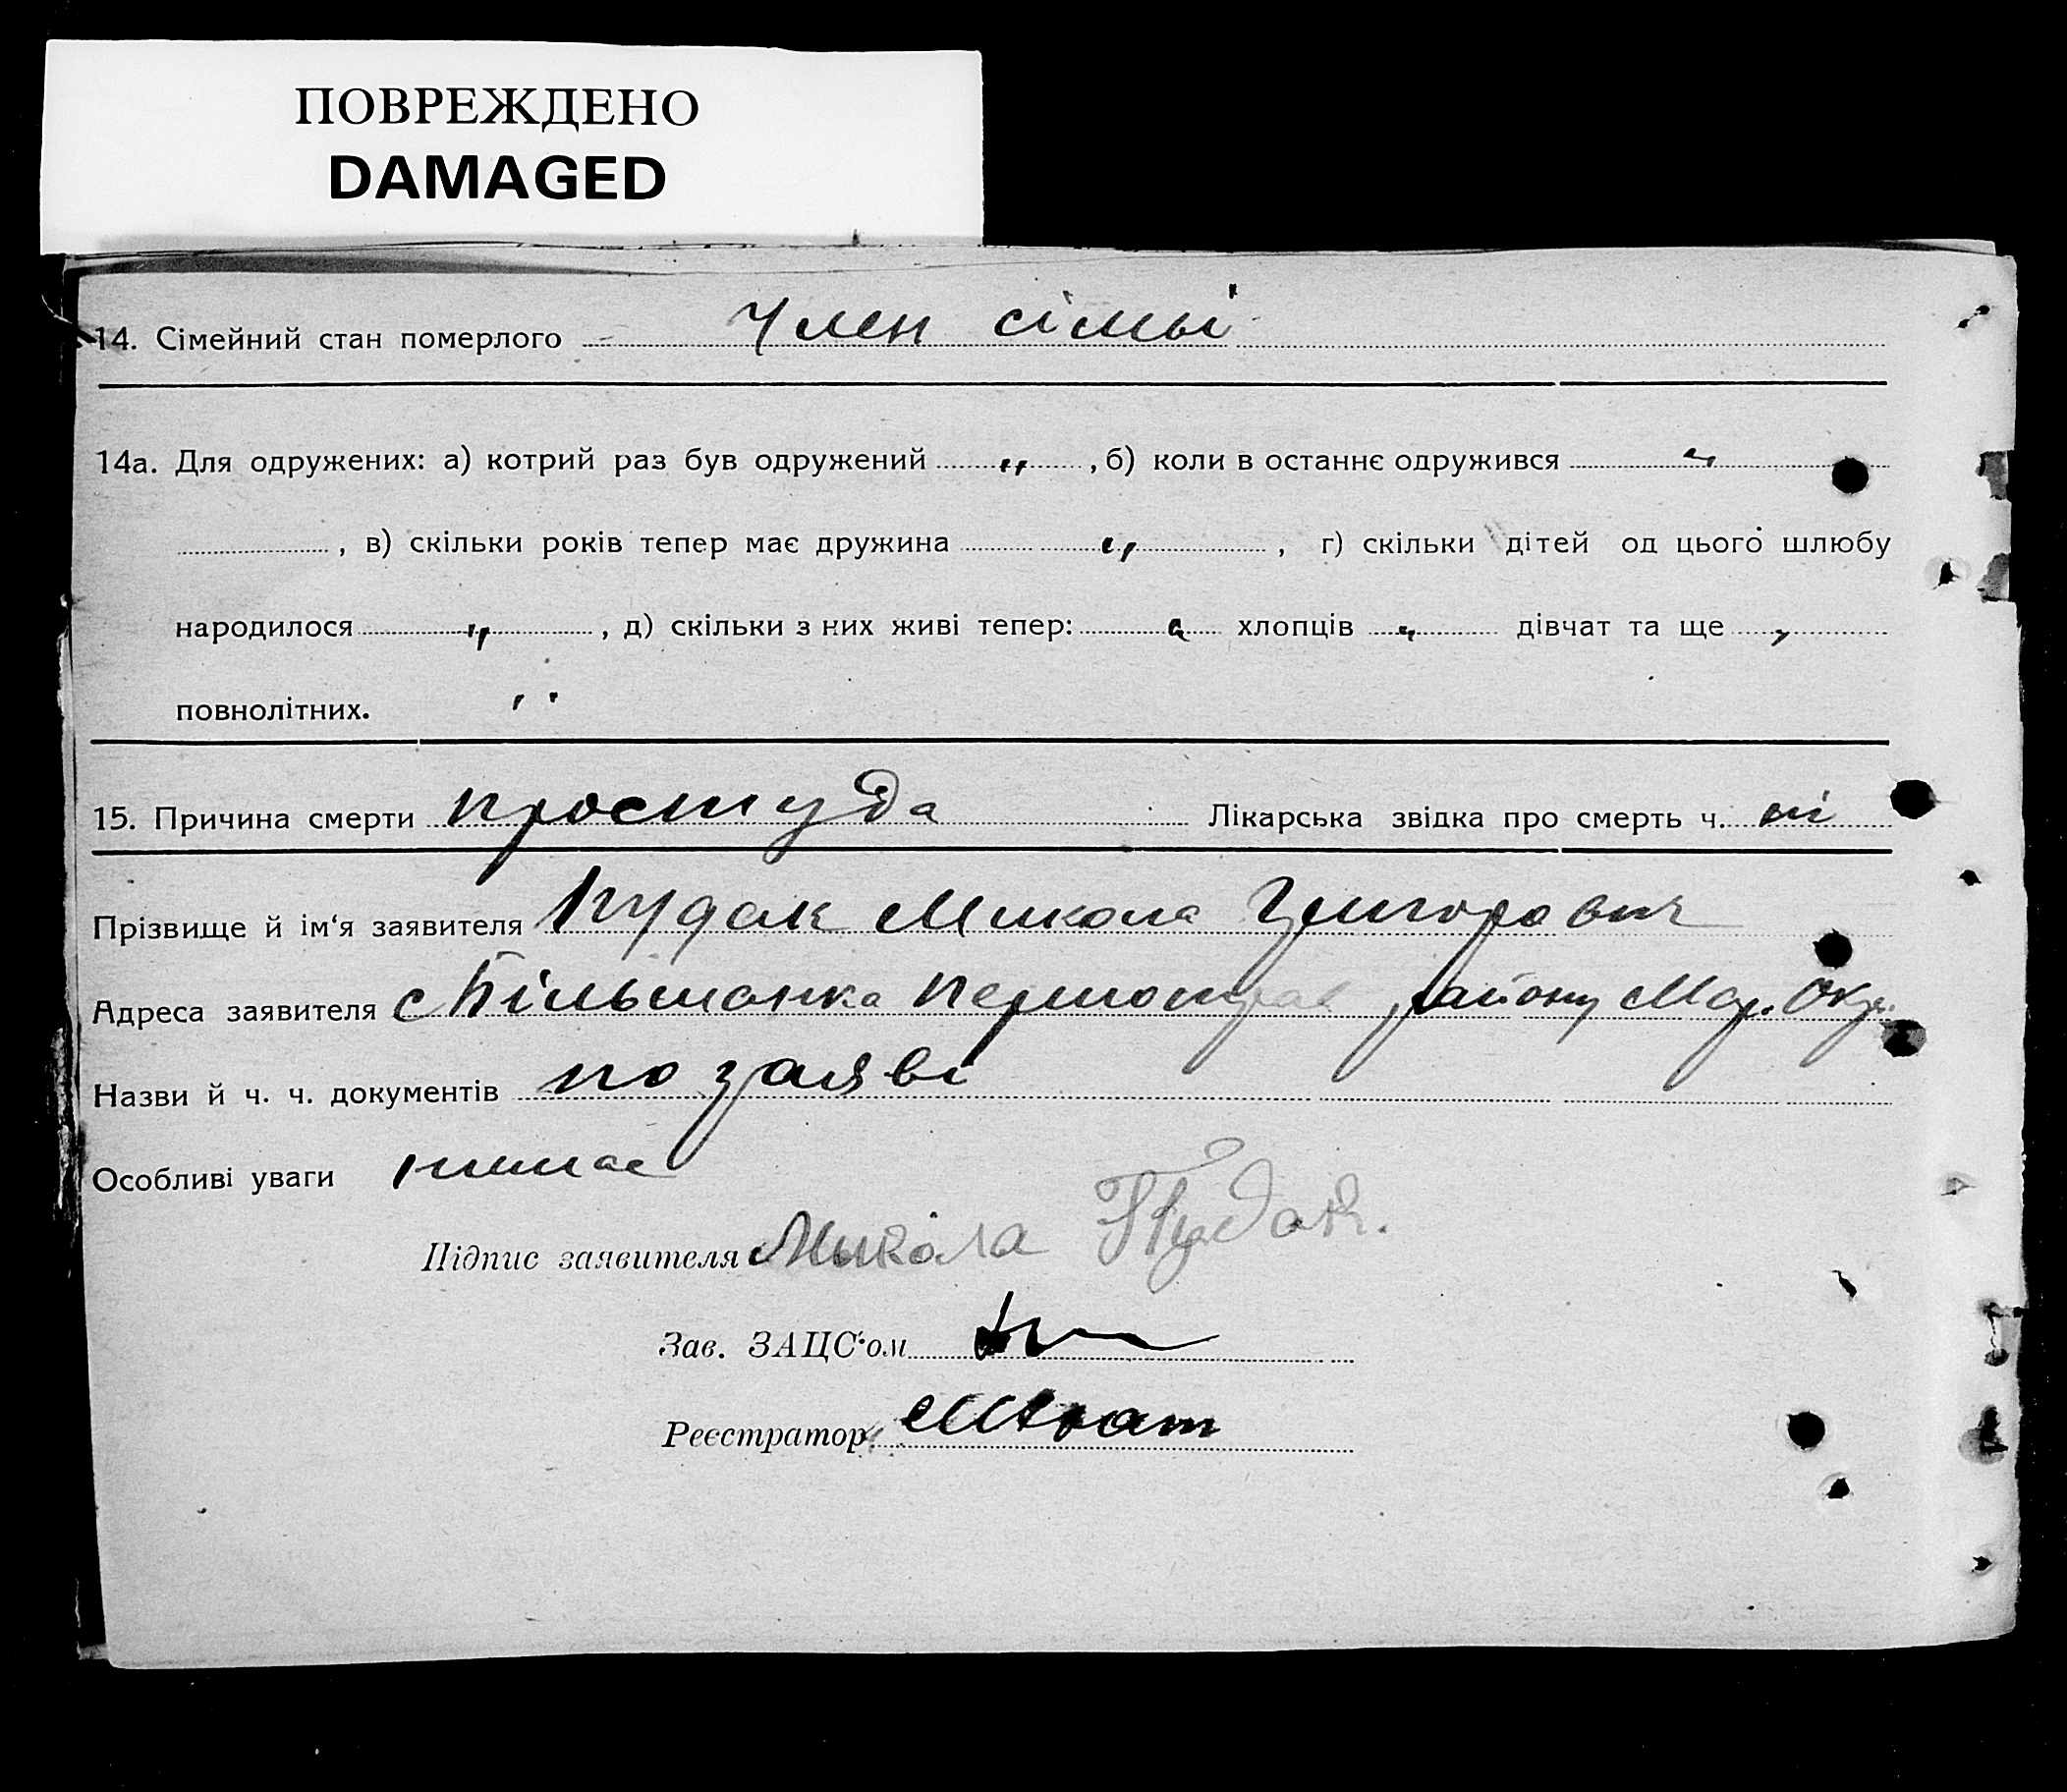 ПОВРЕЖДЕНО
DAMAGED
14. Сімейний стан померлого член сімьі
14а. Для одружених: а) котрий раз був одружений „ , б) коли в останнє одружився „
, в) скільки років тепер має дружина „ , г) скільки дітей од цього шлюбу
народилося „ , д) скільки з них живі тепер: „ хлопців „ дівчат та ще „
повнолітних. „
15. Причина смерти простуда Лікарська звідка про смерть ч. ні
Прізвище й ім'я заявителя Пудак Микола Григорович
Адреса заявителя с района Мар. Окр.
Назви й ч. ч. документів по заяві
Особливі уваги немає
Підпис заявителя Микола Пудак.
Зав. ЗАЦС'ом
Реєстратор